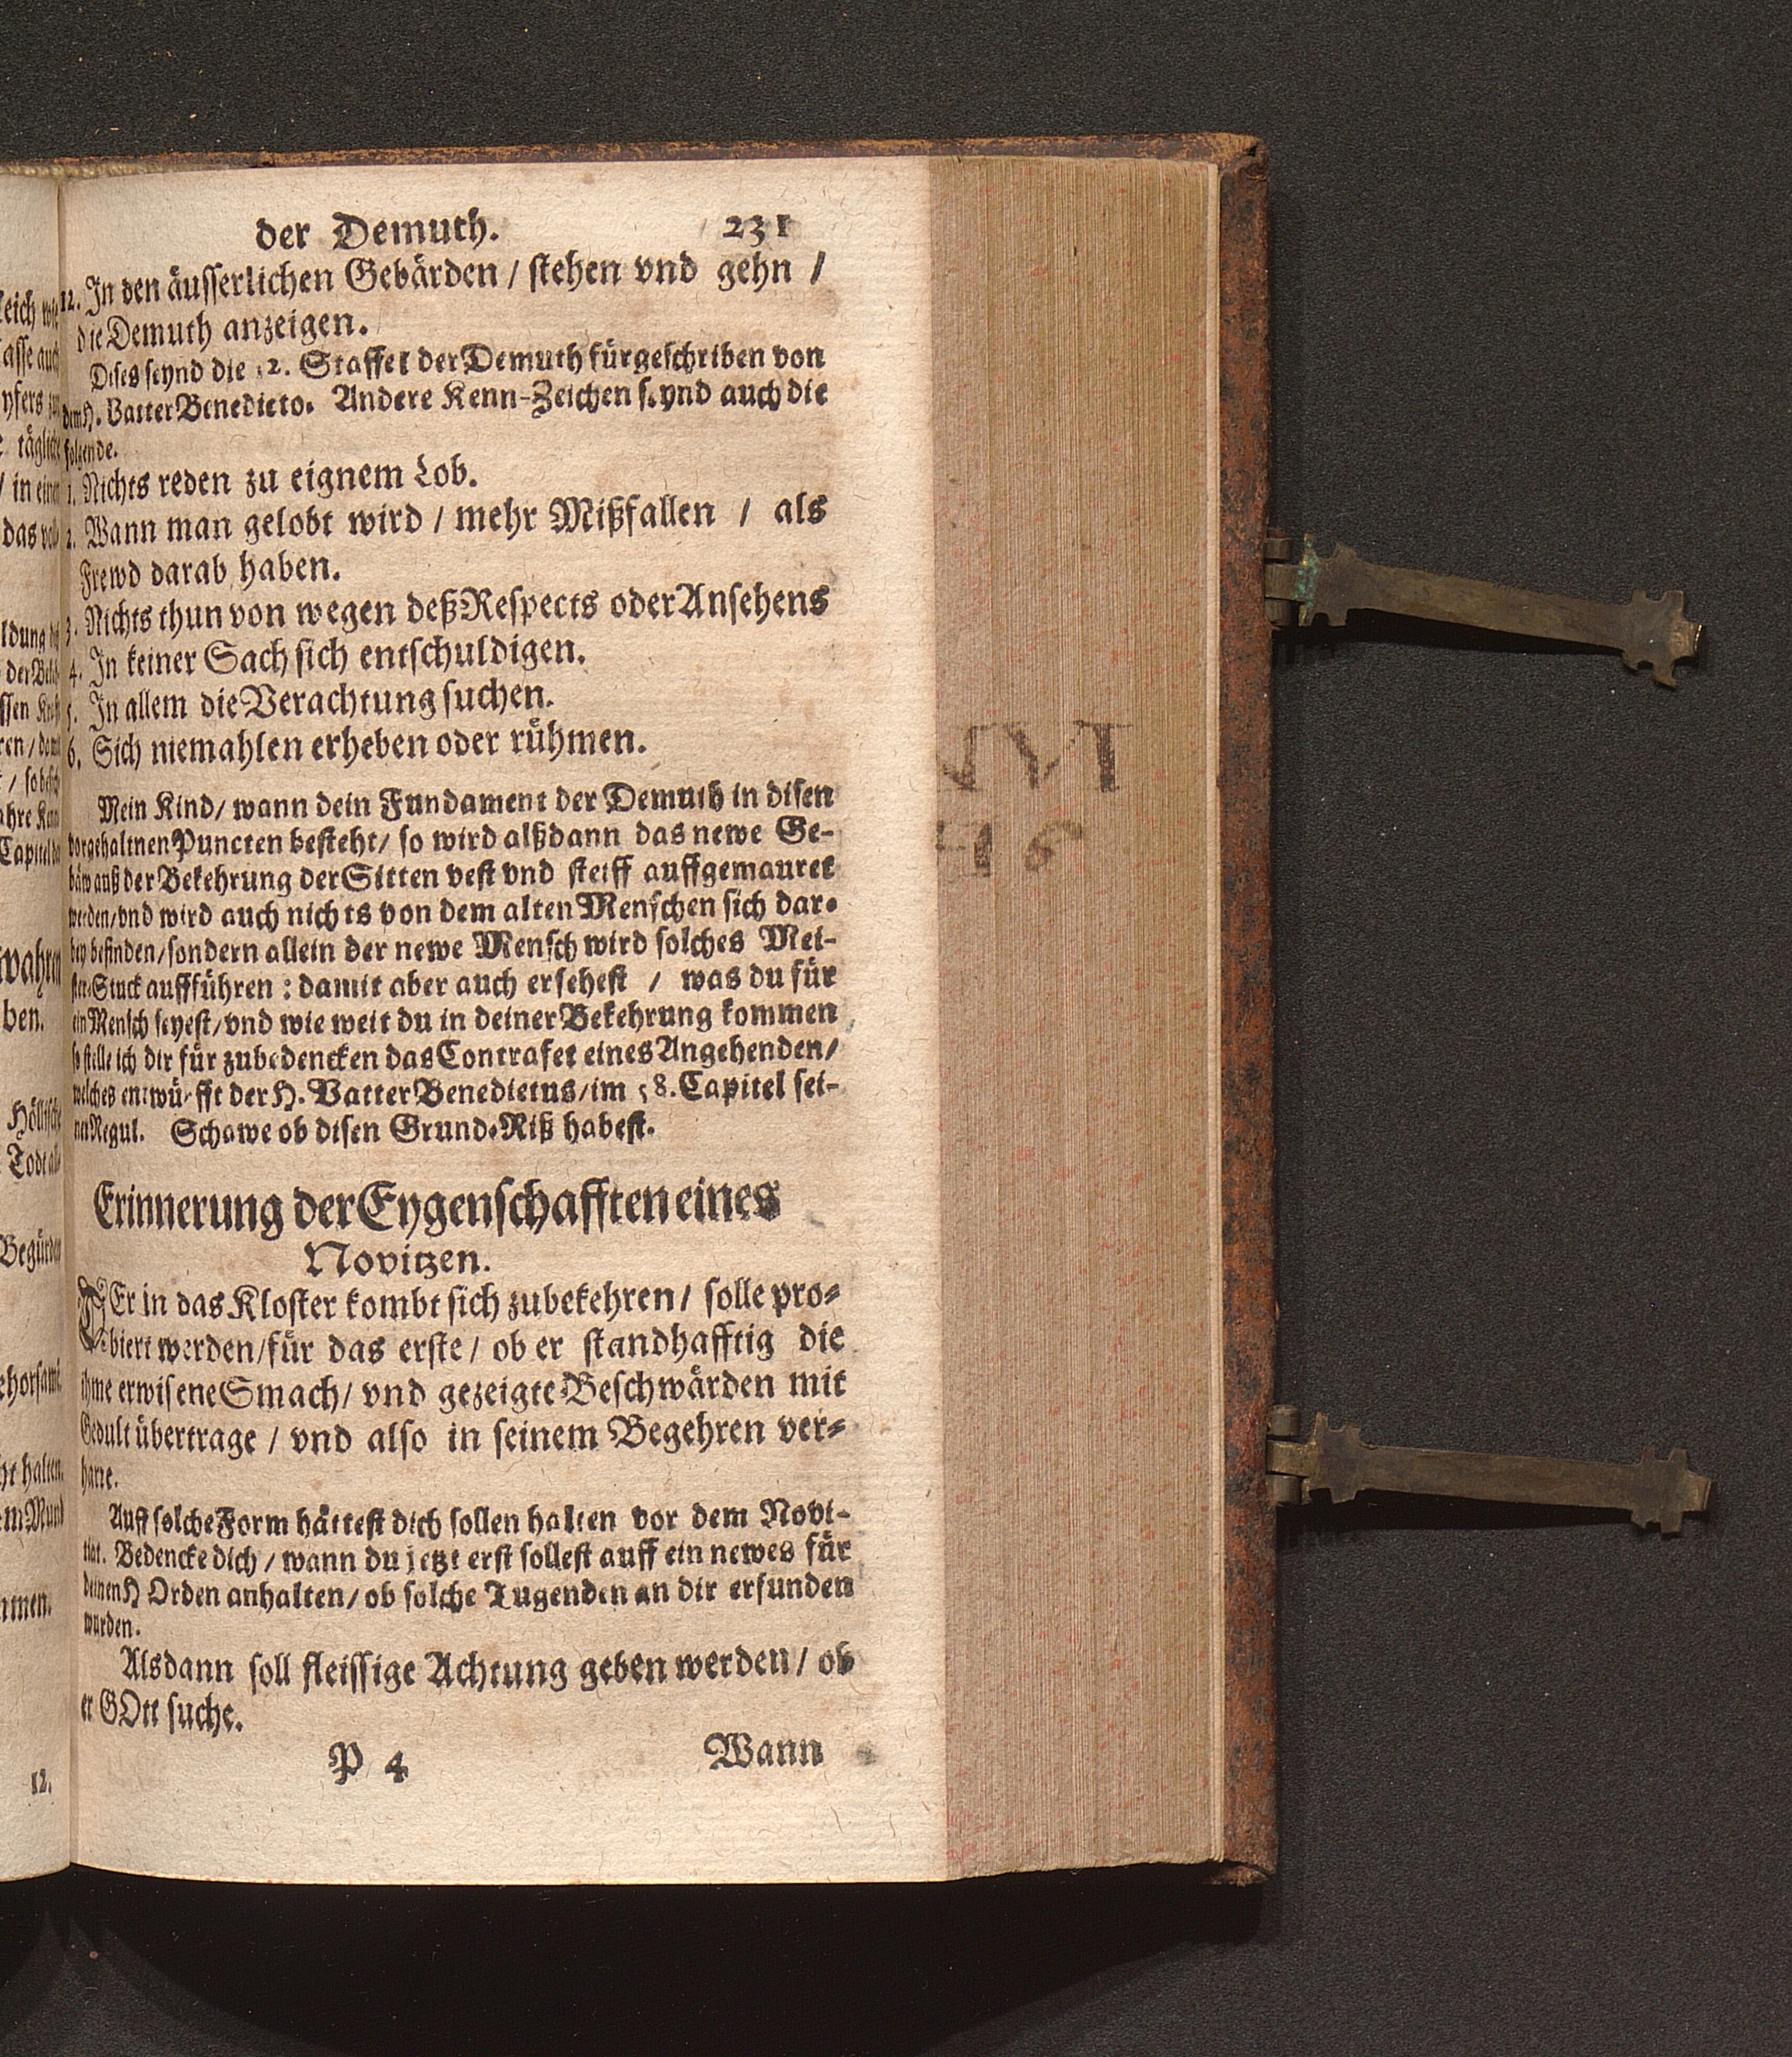 der Demuth. 231
12. In den äusserlichen Gebärden / stehen vnd gehn /
die Demuth anzeigen.
Dises seynd die 12. Staffel der Demuth fürgeschriben von
dem H. Vatter Benedicto. Andere Kenn-Zeichen seynd auch die
folgende.
1. Nichts reden zu eignem Lob.
2. Wann man gelobt wird / mehr Mißfallen / als
Frewd darab haben.
3. Nichts thun von wegen deß Respects oder Ansehens
4. In keiner Sach sich entschuldigen.
5. In allem die Verachtung suchen.
6. Sich niemahlen erheben oder rühmen.
Mein Kind / wann dein Fundament der Demuth in disen
vorgehaltnen Puncten besteht / so wird alßdann das newe Ge-
bäw auß der Bekehrung der Sitten vest vnd steiff auffgemauret
werden / vnd wird auch nichts von dem alten Menschen sich dar-
bey befinden / sondern allein der newe Mensch wird solches Mei-
ster-Stuck aufführen : damit aber auch ersehest / was du für
ein Mensch seyest / vnd wie weit du in deiner Bekehrung kommen
so stelle ich dir für zubedencken das Contrafet eines Angehenden /
welches entwürfft der H. Vatter Benedictus / im 58. Capitel sei-
ner Regul. Schawe ob disen Grund-Riß habest.
Erinnerung der Eygenschafften eines
Novitzen.
DEr in das Kloster kombt sich zubekehren / solle pro-
biert werden / für das erste / ob er standhafftig die
ihme erwisene Smach / vnd gezeigte Beschwärden mit
Gedult übertrage / vnd also in seinem Begehren ver-
harre.
Auff solche Form hättest dich sollen halten vor dem Novi-
tiat. Bedencke dich / wann du jetzt erst sollest auff ein newes für
deinen H Orden anhalten / ob solche Tugenden an dir erfunden
wurden.
Alsdann soll fleissige Achtung geben werden / ob
er GOtt suche.
P 4 Wann